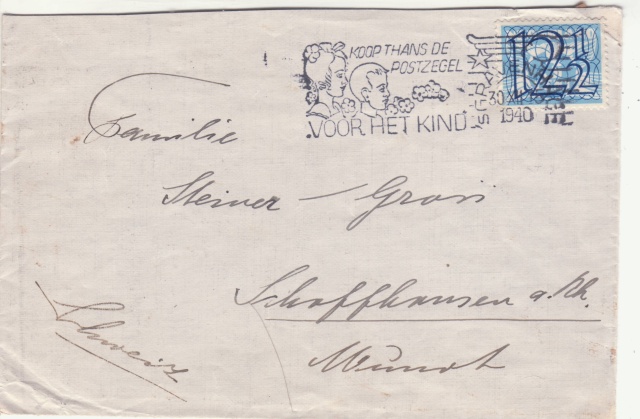 KOOP THANS DE
POSTZEGEL
VOOR HET KIND
12½
30 XII
1940
Familie
Steiner - Gross
Schaffhausen a. Rh.
Schweiz